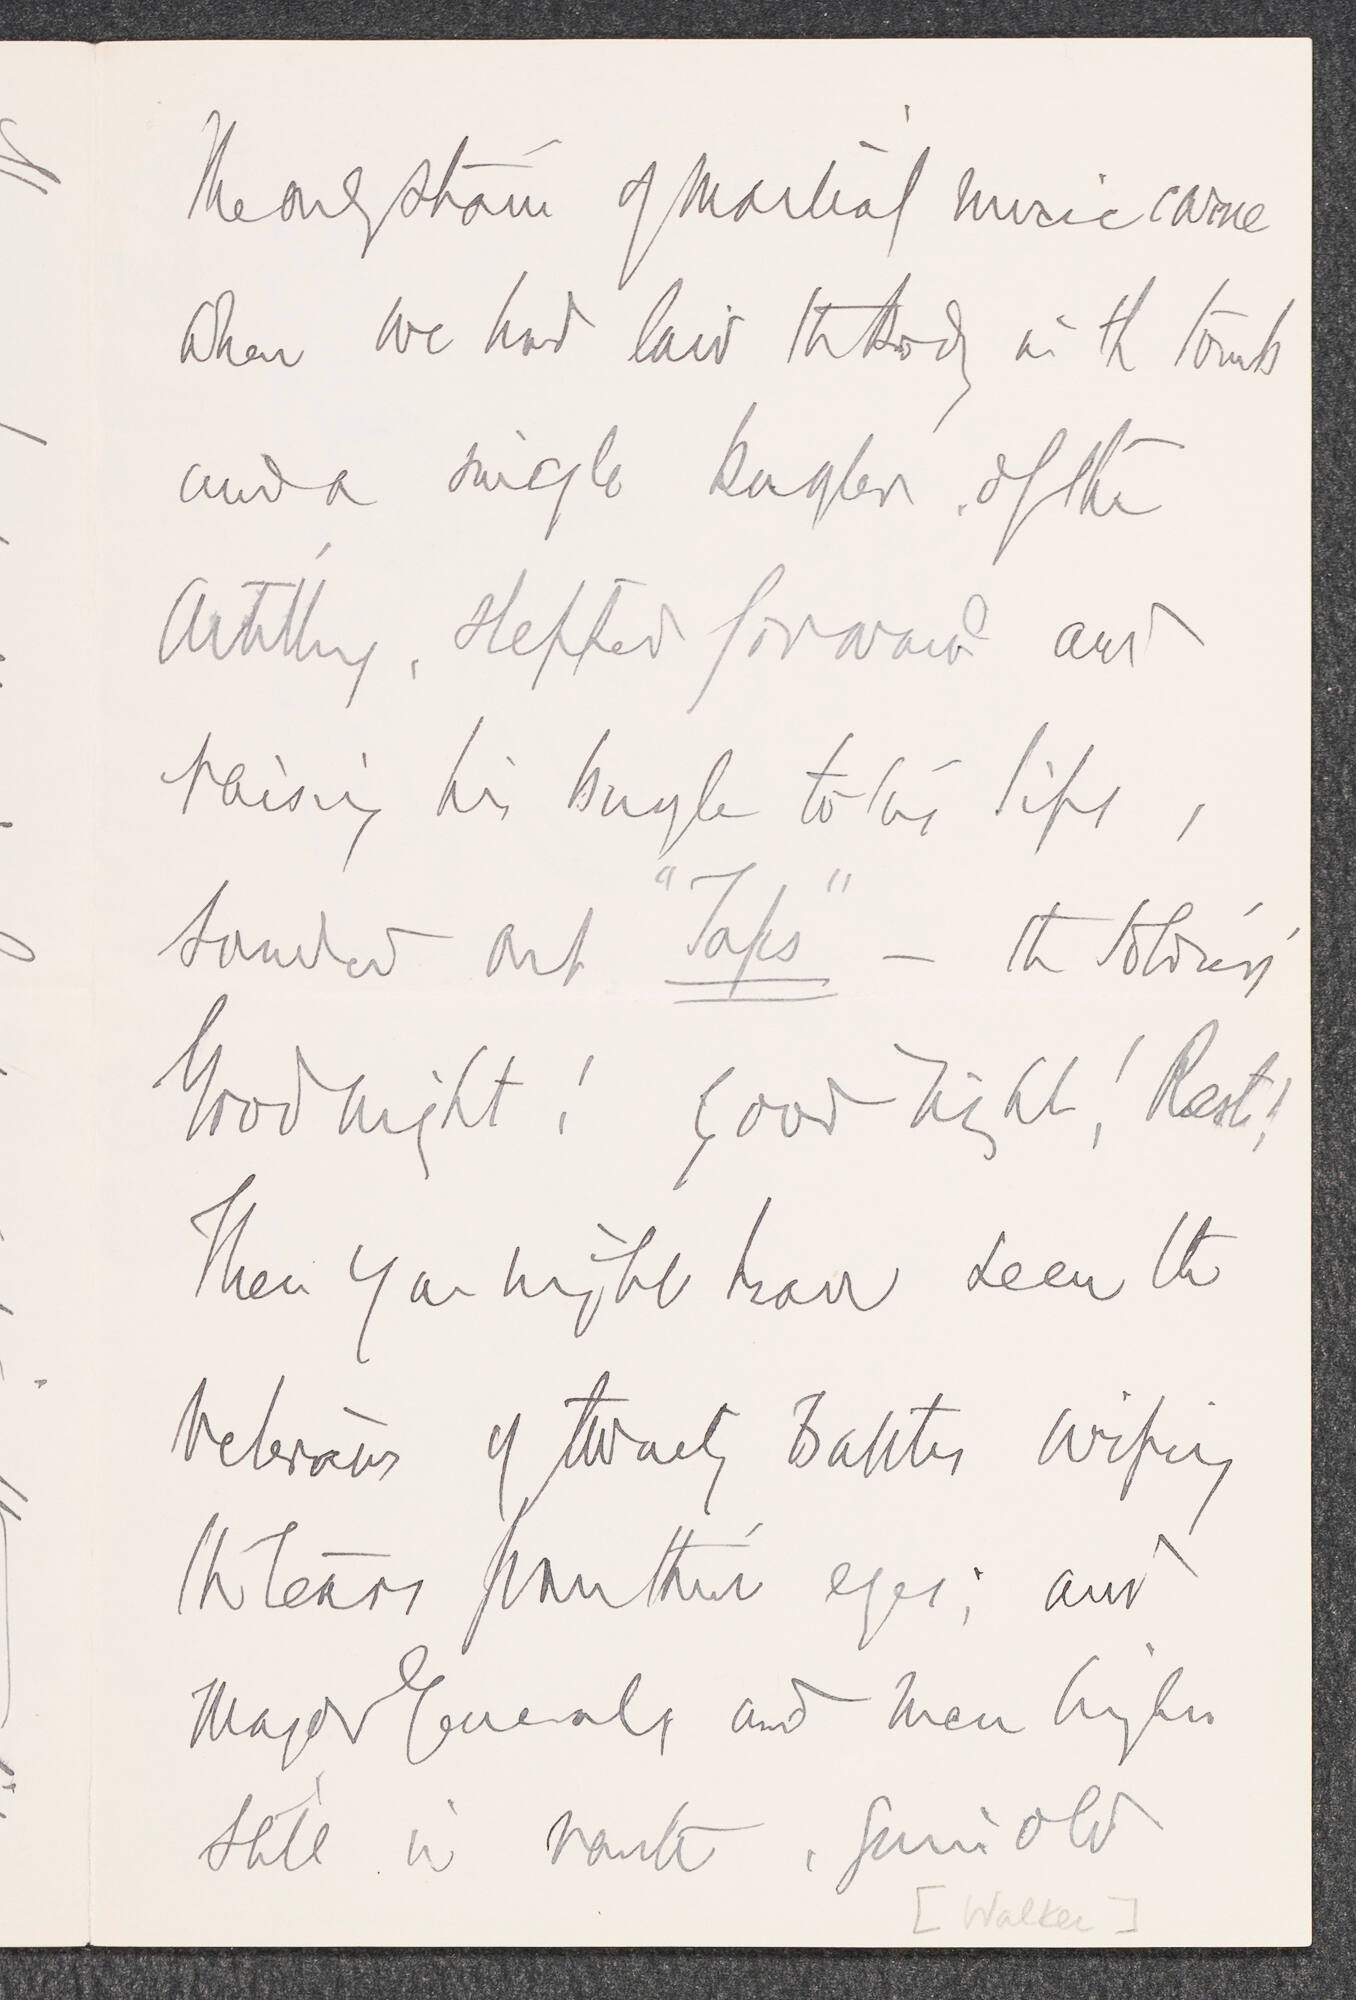 The only strain of Martial music came
when we had laid the body in the tomb
and a single bugler of the
Artillery, stepped forward and
raising his bugle to his lips,
sounded out "Taps" — the soldiers'
Good night! Good night! Rest!
Then you might have seen the
veterans of twenty Battles wiping
the tears from their eyes; and
Major Generals and men higher
still in rank, grim old
[Walker]